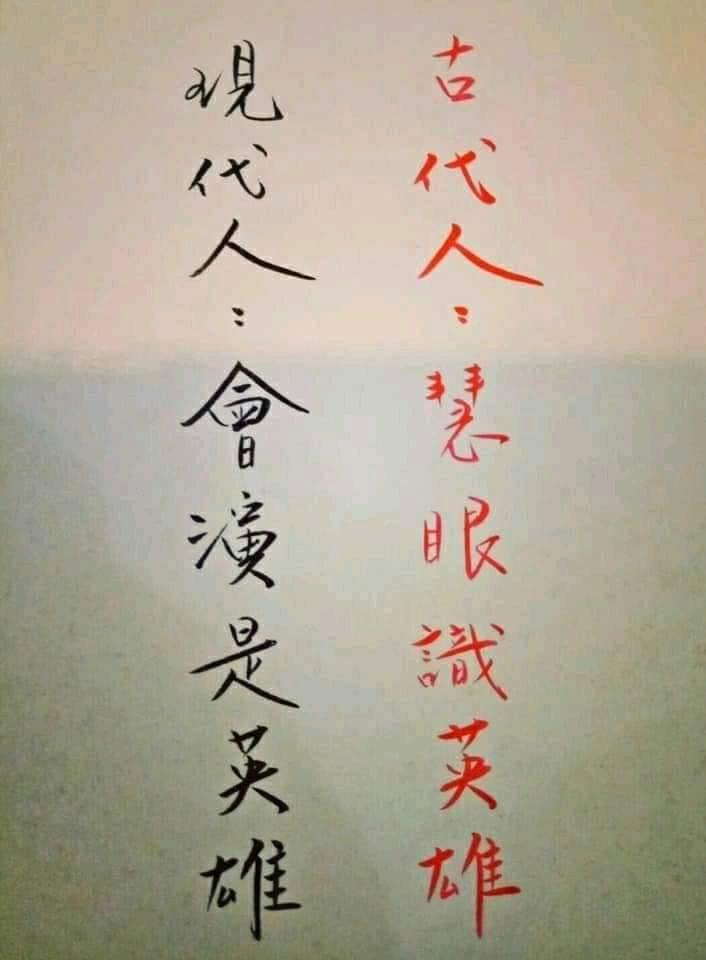 古代人：慧眼識英雄
現代人：會演是英雄